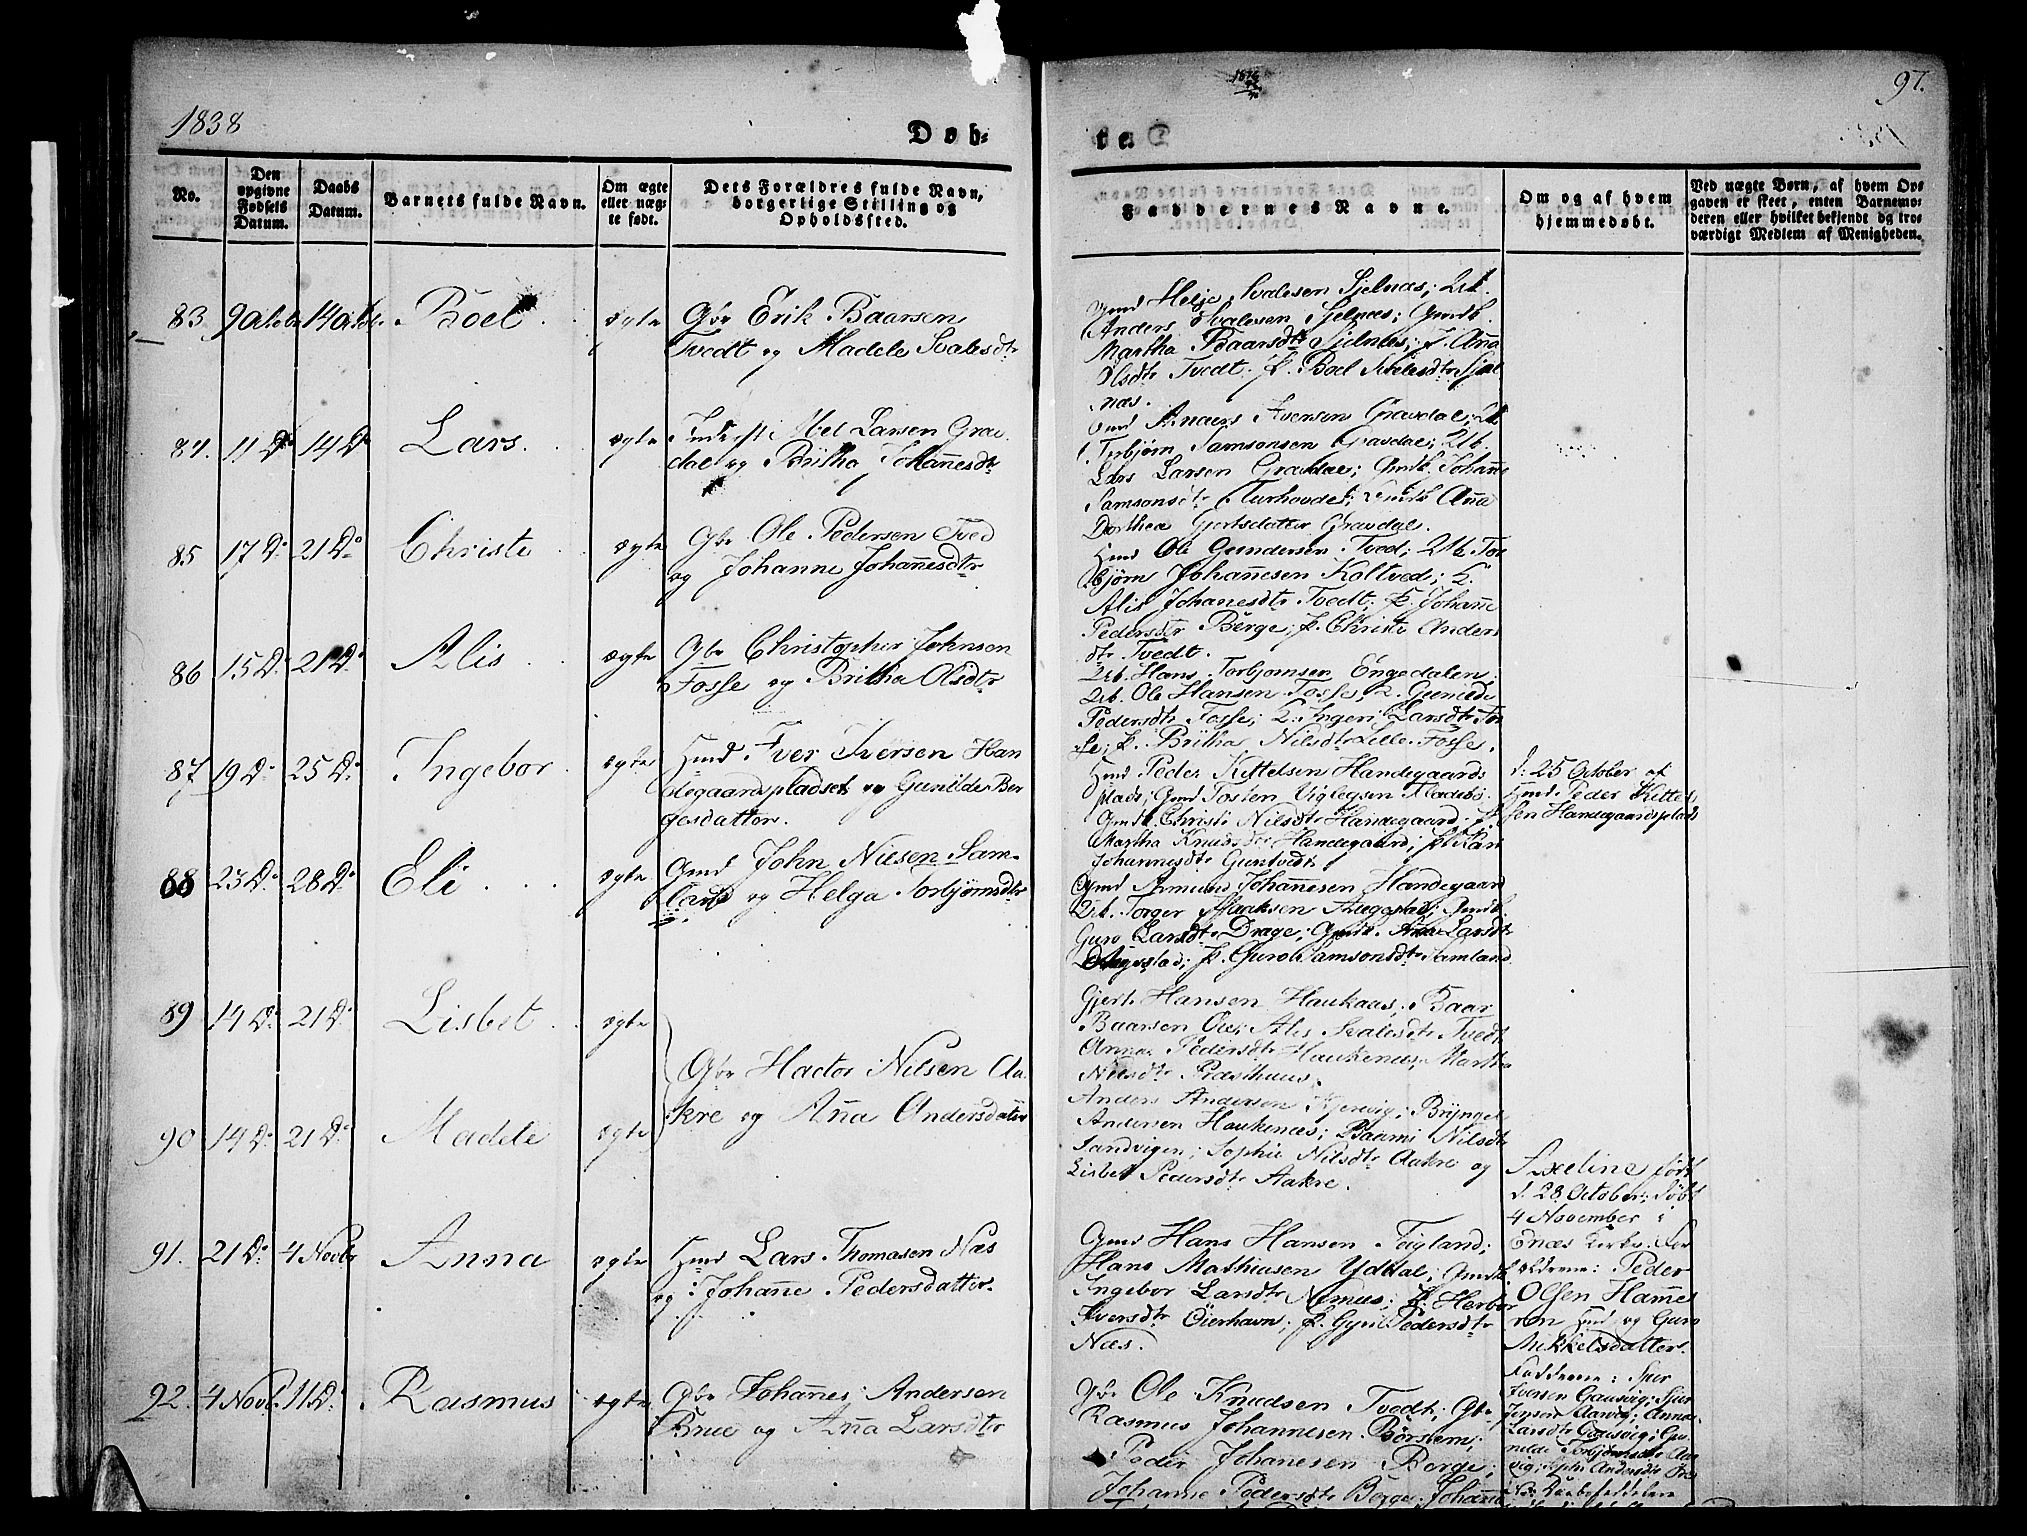 1838
Døb-
te.
97.
No.
Den opgivne Fødsels Datum.
Daabs Datum.
Barnets fulde Navn.
Om ægte eller uæg- te født.
Dets Forældres fulde Navn, borgerlige Stilling og Opholdssted.
Faddernes Navne.
Om og af hvem hjemmedøbt.
Ved uægte Børn, af hvem Op- gaven er skeet, enten Barnemo- deren eller hvilket bekjendt og tro- værdigt Medlem af Menigheden.
83 9 Octobr 14 Octbr. Boel ægte Gbr Erik Baarsen
Tvedt og Madele Svalesdtr
Gmd Helje Svalesen Sjelnæs; Ub.
Anders Svalesen Sjelnæs; Gmdk.
Martha Baarsdtr Sjelnæs; P. Anna
Olsdtr Tvedt. P. Boel Svalesdtr Sjel
næs.
84. 11 Do 14 Do Lars. ægte Inderst Abel Larsen Grav
dal og Britha Johannesdtr
Gmd Anders Iversen Gravdal; Ub.
Torbjørn Samsonsen Gravdal; Ub.
Lars Larsen Gravdal; Gmdk. Johanne
Samsonsdtr Turhovde; Gmdk Anna
Dorthea Gjertsdatter Gravdal.
85 17 Do 21 Do Christi ægte Gbr Ole Pedersen Tved
og Johanne Johannesdtr
Hmd Ole Gundersen Tved; Ub. Tor
bjørn Johannesen Koltved; K.
Alis Johanesdtr Tvedt; P. Johanne
Pedersdtr Berge; P. Christi Anders
dtr Tvedt.
86 15 Do 21 Do Alis ægte Gbr Christopher Johnsen
Fosse og Britha Olsdtr
Ub. Hans Torbjørnsen Engedalen;
Ub. Ole Hansen Fosse; K. Gunilde
Pedersdtr Fosse; K. Ingeri Larsdtr Fos
se; P. Britha Nilsdtr Lille-Fosse.
87 19 Do 25 Do Ingebor ægte Hmd Iver Iversen Han
degaardspladset og Gunilde Ber
gesdatter.
Hmd Peder Kittelsen Handegaards
plads; Gmd Tosten Viglegsen Fladebø
Gmdk. Christi Nilsdtr Handegaard; P.
Martha Knudsdtr Handegaard; P. Kari
Johannesdtr Guntvedt
d: 25 October af
Hmd Peder Kittel
sen Handegaardsplads
88 23 Do 28 Do Eli ægte Gmd John Nilsen Sam-
land og Helga Torbjørnsdtr
Gmd Amund Johannesen Handegaard
Ub. Torger Haaksen Augestad; Gmdk.
Guro Larsdtr Drage; Gmdk. Anna Larsdtr
Augestad; P. Guro Samsonsdtr Samland
89 14 Do 21 Do Lisbet ægte
Gbr Hactor Nilsen Aa
kre og Anna Andersdatter
Gjert Hansen Haukaas; Baar
Baarsen Øie; Alis Svalesdtr Tvedt
Anna Pedersdtr Haukenæs; Martha
Nilsdtr Præsthuus.
90 14 Do 21 Do Madele ægte
Anders Andersen Hjervig; Bryngel
Andersen Haukenæs; Raumi Nilsdtr
Sandvigen; Sophie Nilsdtr Aakre og
Lisbet Pedersdtr Aakre.
91. 21 Do 4 Novbr Anna ægte Hmd Lars Thomasen Næs
og Johanne Pedersdatter.
Gmd Hans Hansen Teigland;
Hans Mathiasen Yddal; Gmdk
Ingebor Larsdtr Nemus; P. Herbor
Iversdtr Øierhavn; P. Gyri Pedersdtr
Næs.
Axeline født
d. 28 October; døbt
4 November i
Enæs Kirke. For
ældrene: Peder
Olsen Hamme
ren Hmd og Guro
Mikkelsdatter.
Fadderne: Sjur
Iversen Gausvig; Sjur
Jensen Aarvig; Anna
Larsdtr Gausvig; Gu
nilde Torbjørnsdtr Aar
vig;
92. 4 Novb. 11 Do Rasmus ægte Gbr Johannes Andersen
Brue og Anna Larsdtr
Gbr Ole Knudsen Tvedt; Gbr
Rasmus Johannesen Børsem;
Peder Johanesen Berge;
Johanne Pedersdtr Berge; Johanne